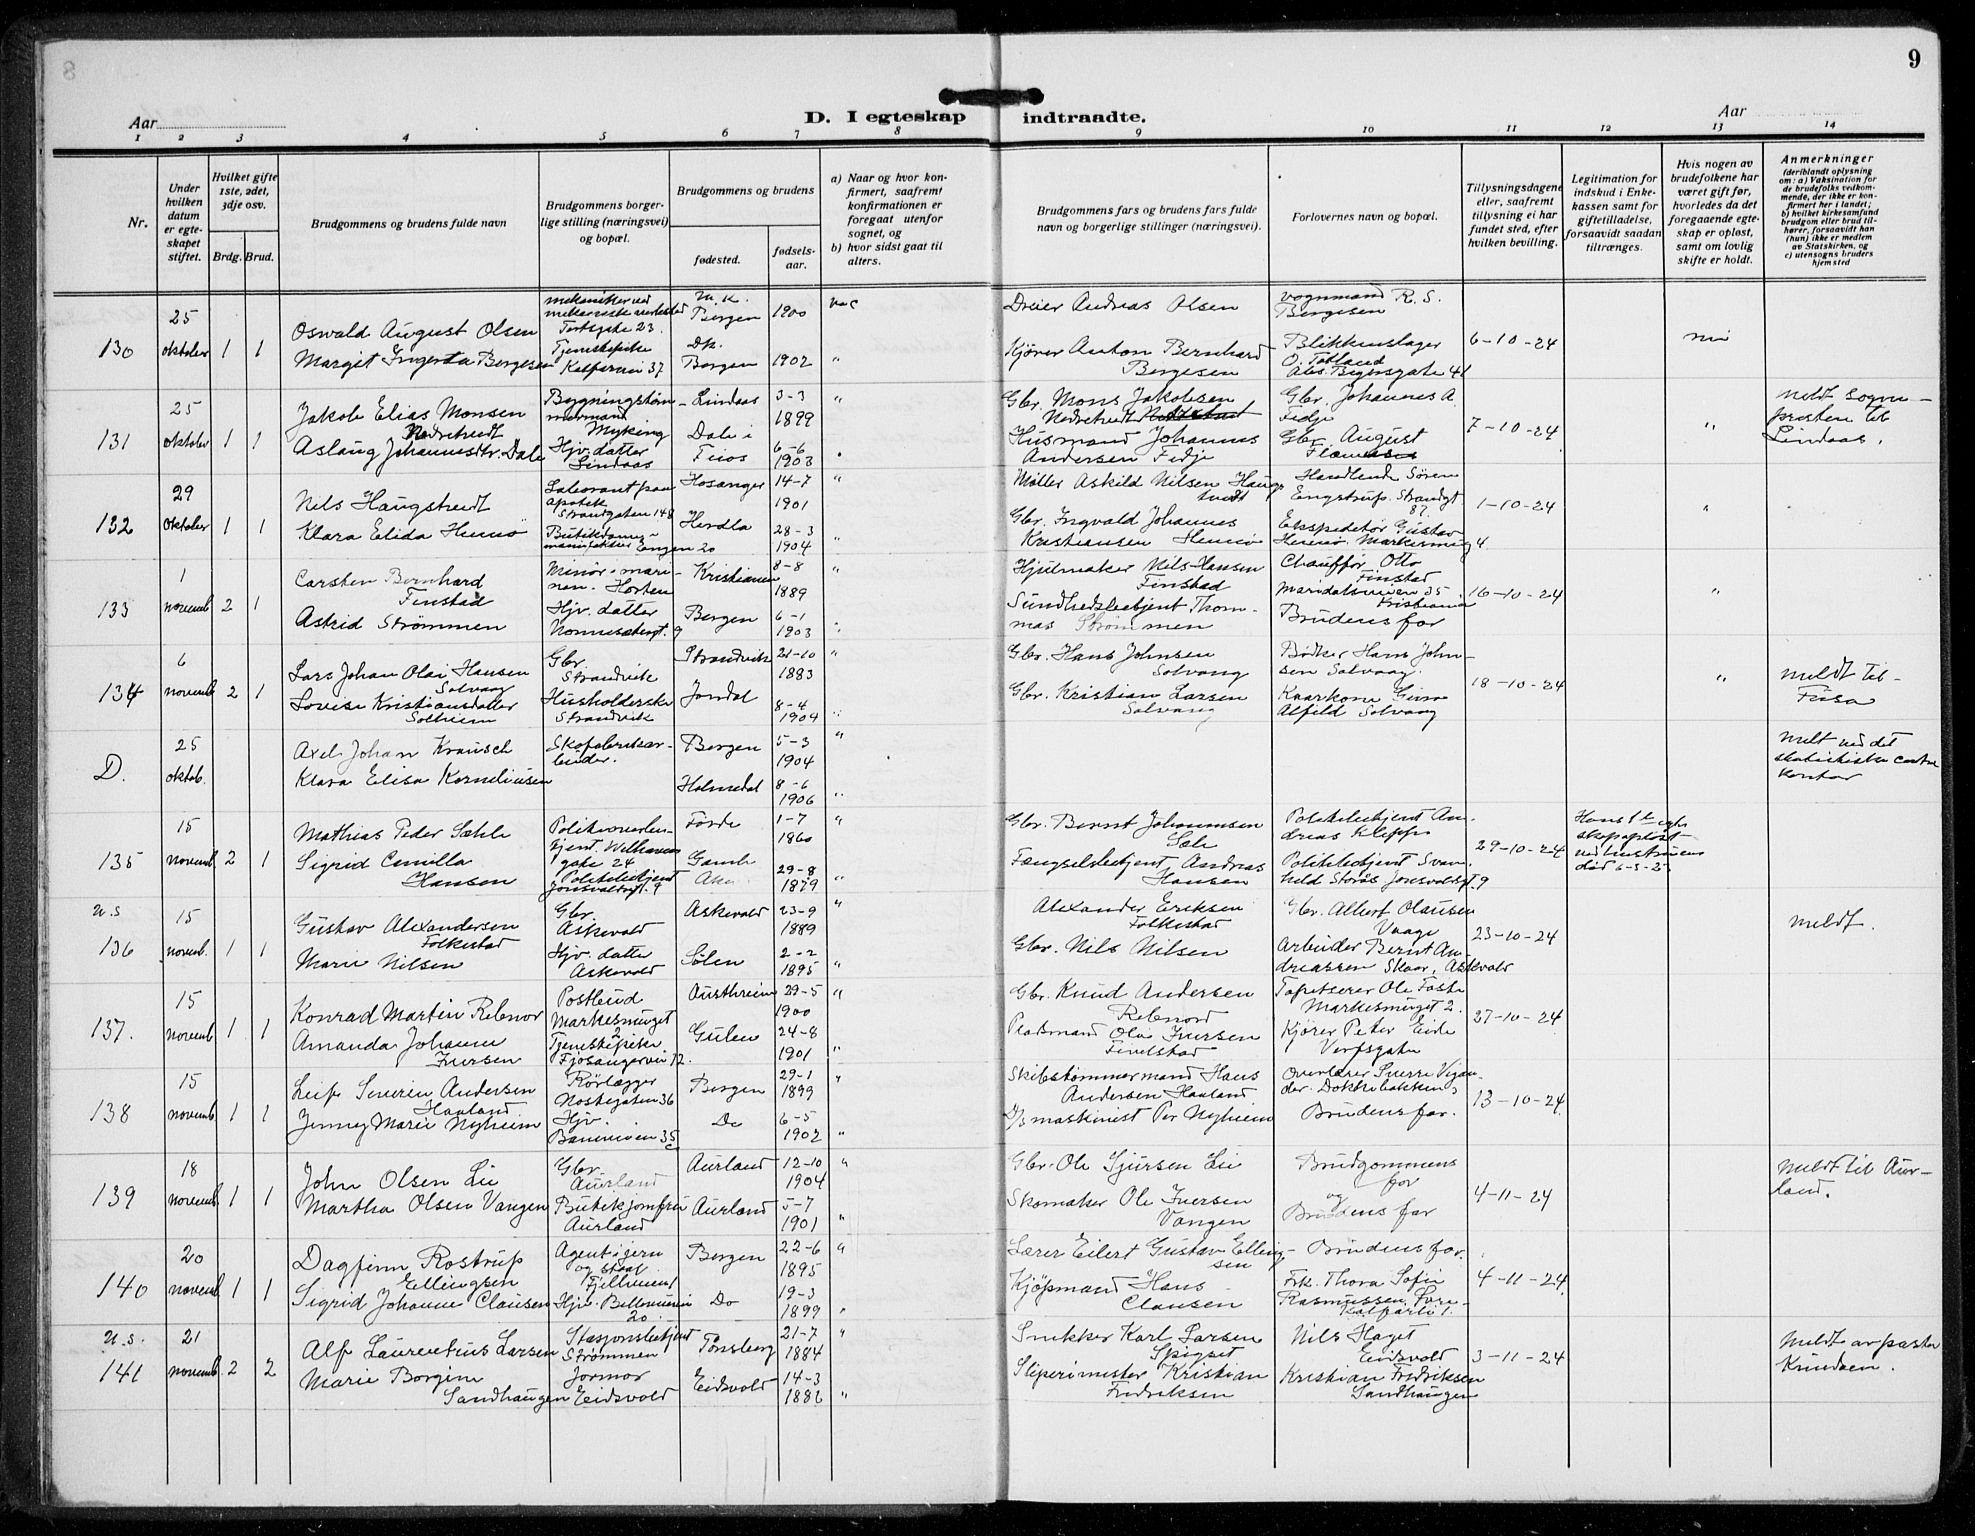 9
D. I egteskap indtraadte.
Aar
Aar
1 2 3 4 5 6 7 8 9 10 11 12 13 14
Nr.
Under hvilken datum er egteskapet stiftet.
Hvilket gifte 1ste, 2det, 3dje osv.
Brdg. Brud.
Brudgommens og brudens fulde navn
Brudgommens borgerlige stilling (næringsvei) og bopæl.
Brudgommens og brudens
fødested.
fødselsaar.
a) Naar og hvor konfirmert, saafremt konfirmationen er foregaat utenfor sognet, og
b) hvor sidst gaat til alters.
Brudgommens fars og brudens fars fulde navn og borgerlige stillinger (næringsvei).
Forlovernes navn og bopæl.
Tillysningsdagene eller, saafremt tillysning ei har fundet sted, efter hvilken bevilling.
Legitimation for indskud i Enkekassen samt for giftetilladelse, forsaavidt saadan tiltrænges.
Hvis nogen av brudefolkene har været gift før, hvorledes da det foregaaende egteskap er opløst, samt om lovlig skifte er holdt.
Anmerkninger (deriblandt oplysning om: a) Vaksination for de brudefolks vedkommende, der ikke er konfirmert her i landet; b) hvilket kirkesamfund brudgom eller brud tilhører, forsaavidt han (hun) ikke er medlem av Statskirken, og c) utensogns bruders hjemsted
130 25 oktober 1 1
Oswald August Olsen
Bergen 1900
Dreier Andreas Olsen
vognmand R. S. Bergesen
Margit Ingerta Bergesen
Tjenestepike Kalfarvei 37
Bergen 1902
Kjører Anton Bernhard Bergesen
Blikkenslager O. Totland
6-10-24
131 25 oktober 1 1
Jakob Elias Monsen Nedretvedt
Bygningstømmermand Myking
Lindaas 3-3 1899
Gbr. Mons Jakobsen
Gbr. Johannes A. Fedje
7-10-24
meldt sognepresten til Lindaas.
Aslaug Johannesdtr. Dale
Hjv. datter Lindaas
Dale i 6-6 1903
Husmand Johannes Andersen Fedje
Gbr. August
132 29 oktober 1 1
Nils Haugstvedt
Strandgaten 148
Hosanger 14-7 1901
Møller Askild Nilsen Haugstvedt
Handlende Sören Engstrup. Strandgt. 87.
1-10-24
Klara Elida Hennø
Engen 20
Herdla 28-3 1904
Gbr. Ingvald Johannes Kristiansen Hennø
Ekspeditør Gustav Hennø. Markesmug 4.
133 1 novemb 2 1
Carsten Bernhard Finstad
Minør i marinen. Horten
Kristiania 8-8 1889
Hjulmaker Nils Hansen Finstad
Chauffør Otto Finstad
Maridalsveien 35. Kristiania
16-10-24
Astrid Strømmen
Hjv. datter Nonnesetergt. 9
Bergen 6-1 1903
Sundhedsbetjent Thommas Strømmen
Brudens far
134 6 novemb 2 1
Lars Johan Olai Hansen Solvang
Gbr. Strandvik
Strandvik 21-10 1883
Gbr. Hans Johnsen Solvang
Bødker Hans Johnsen Solvaag.
18-10-24
meldt til Fusa
Lovise Kristiansdatter Solheim
Husholderske Strandvik
Jondal 8-4 1904
Gbr. Kristian Larsen Solvang
Alfild Solvaag
D. 25 oktob.
Axel Johan Krausch
Skofabrikarbeider.
Bergen 5-3 1904
Klara Elisa Korneliussen
Holmedal 8-6 1906
Melt ved det statistiske centr. kontor
135 15 novemb 2 1
Mathias Peder Sæhle
gate 24
Førde 1-7 1860
Gbr. Bernt Johannsen Sæle
Politibetjent Andreas Klepp
29-10-24
Sigrid Camilla Hansen
Politibetjent
29-8 1879
Fængselsbetjent Andreas Hansen
136 u.s 15 novemb. 1 1
Gustav Alexandersen Folkestad
Gbr. Askevold
Askevold 23-9 1889
Alexander Eriksen Folkestad
Gbr. Albert Olausen Vaage
23-10-24
meldt.
Marie Nilsen
Hjv. datter Askevold
Sølen 2-2 1895
Gbr. Nils Nilsen
Arbeider Bernt Andreassen Skaar, Askvold
137. 15 novemb 1 1
Konrad Martin Rebnor
Postbud Markesmuget 2
Austrheim 29-5 1900
Gbr. Knud Andersen Rebnord
Tapetserer Ole Foste Markesmuget 2.
27-10-24
Amanda Johanne Iversen
Tjenestepike Fjosangervei 72.
Gulen 24-8 1901
Pladsmand Olai Iversen Findelstad
Kjører Peter Eide Verftsgaten
138 15 novemb. 1 1
Leif Severin Andersen Haaland
Rørlægger Nostegaten 36
Bergen 29-1 1899
Skibstømmermand Hans Andersen Haaland
Overlærer Sverre Vigander. Dokkebakken
13-10-24
Jenney Marie Nyheim
Hjv. 35
Do 6-5 1902
D/S maskinist Per Nyheim
Brudens far.
139 18 novemb 1 1
John Olsen Li
Gbr. Aurland
Aurland 12-10 1904
Gbr. Ole Sjursen Li
Brudgommens far og
4-11-24
meldt til Aurland.
Martha Olsen Vangen
Butikjomfru Aurland
Aurland 5-7 1901
Skomaker Ole Iversen Vangen
Brudens far
140 20 novemb 1 1
Dagfinn Rostrup Ellingsen
Agent i jern og staal
Bergen 22-6 1895
Lærer Eilert Gustav Ellingsen
Brudens far.
4-11-24
Sigrid Johanne Clausen
20.
Do 19-3 1899
Kjøpmand Hans Clausen
Frk. Thora Sofie Rasmussen.
141 u.s. 21 novemb 2 2
Alf Laurentius Larsen
Stasjonsbetjent Strømmen
Tønsberg 21-7 1884
Snekker Karl Larsen
Nils Haget Eidsvold
3-11-24
Meldt av pastor Knudsen.
Marie Borgine Sandhaugen
Jormor Eidsvold
Eidsvold 14-3 1882
Sliperimester Kristian Fredriksen
Kristian Fredriksen Sandhaugen